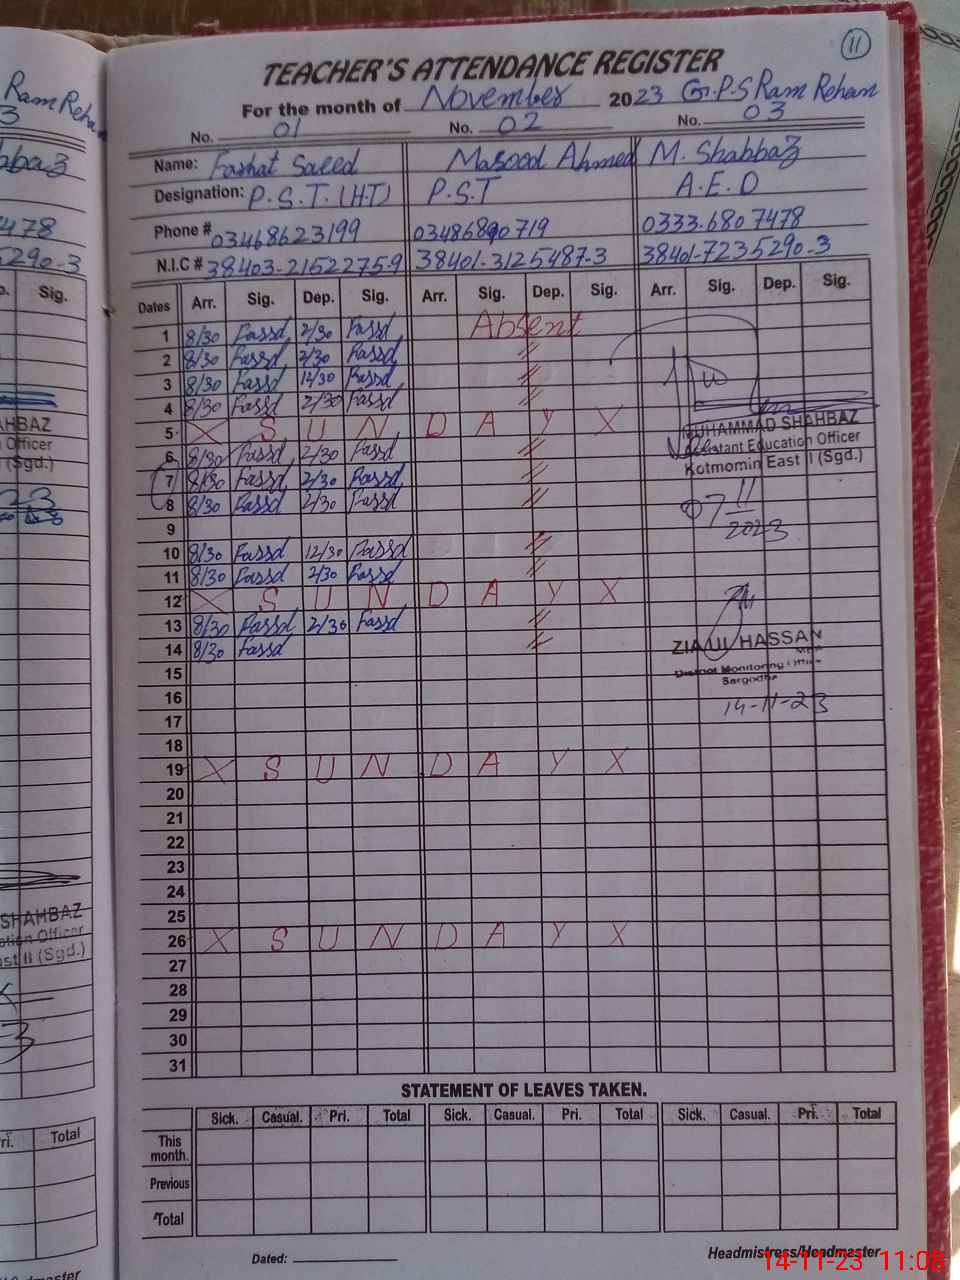 11
TEACHER'S ATTENDANCE REGISTER
For the month of November 2023 G.P.S Ram Rehan
No. 01 No. 02 No. 03
Name: Farhat Saeed Masood Ahmed M. Shabbaz
Designation: P.S.T. (H.T) P.S.T A.E.O
Phone # 03468623199 03486890719 0333.6807478
N.I.C # 38403-2152275-9 38401-3125487-3 38401-7235290-3
Dates Arr. Sig. Dep. Sig. Arr. Sig. Dep. Sig. Arr. Sig. Dep. Sig.
1 8/30 Fassd 2/30 Fassd Absent
2 8/30 Fassd 2/30 Fassd //
3 8/30 Fassd 12/30 Fassd //
4 8/30 Fassd 2/30 Fassd //
5 X S U N D A Y X
MUHAMMAD SHAHBAZ
6 8/30 Fassd 2/30 Fassd //
Assistant Education Officer
7 8/30 Fassd 2/30 Fassd //
Kotmomin East II (Sgd.)
8 8/30 Fassd 2/30 Fassd //
07 11
2023
9
10 8/30 Fassd 12/30 Fassd //
11 8/30 Fassd 2/30 Fassd //
12 X S U N D A Y X
13 8/30 Fassd 2/30 Fassd //
14 8/30 Fassd //
ZIA UL HASSAN
District Monitoring Office
Sargodha
15
14-11-23
16
17
18
19 X S U N D A Y X
20
21
22
23
24
25
26 X S U N D A Y X
27
28
29
30
31
STATEMENT OF LEAVES TAKEN.
Sick. Casual. Pri. Total Sick. Casual. Pri. Total Sick. Casual. Pri. Total
This month.
Previous
Total
Dated:
Headmistress/Headmaster
14-11-23 11:08
Ram Rehan
3
bbaz
7478
5290-3
Sig.
AHBAZ
Officer
(Sgd.)
23
SHAHBAZ
ation Officer
ast II (Sgd.)
3
ri. Total
dmaster